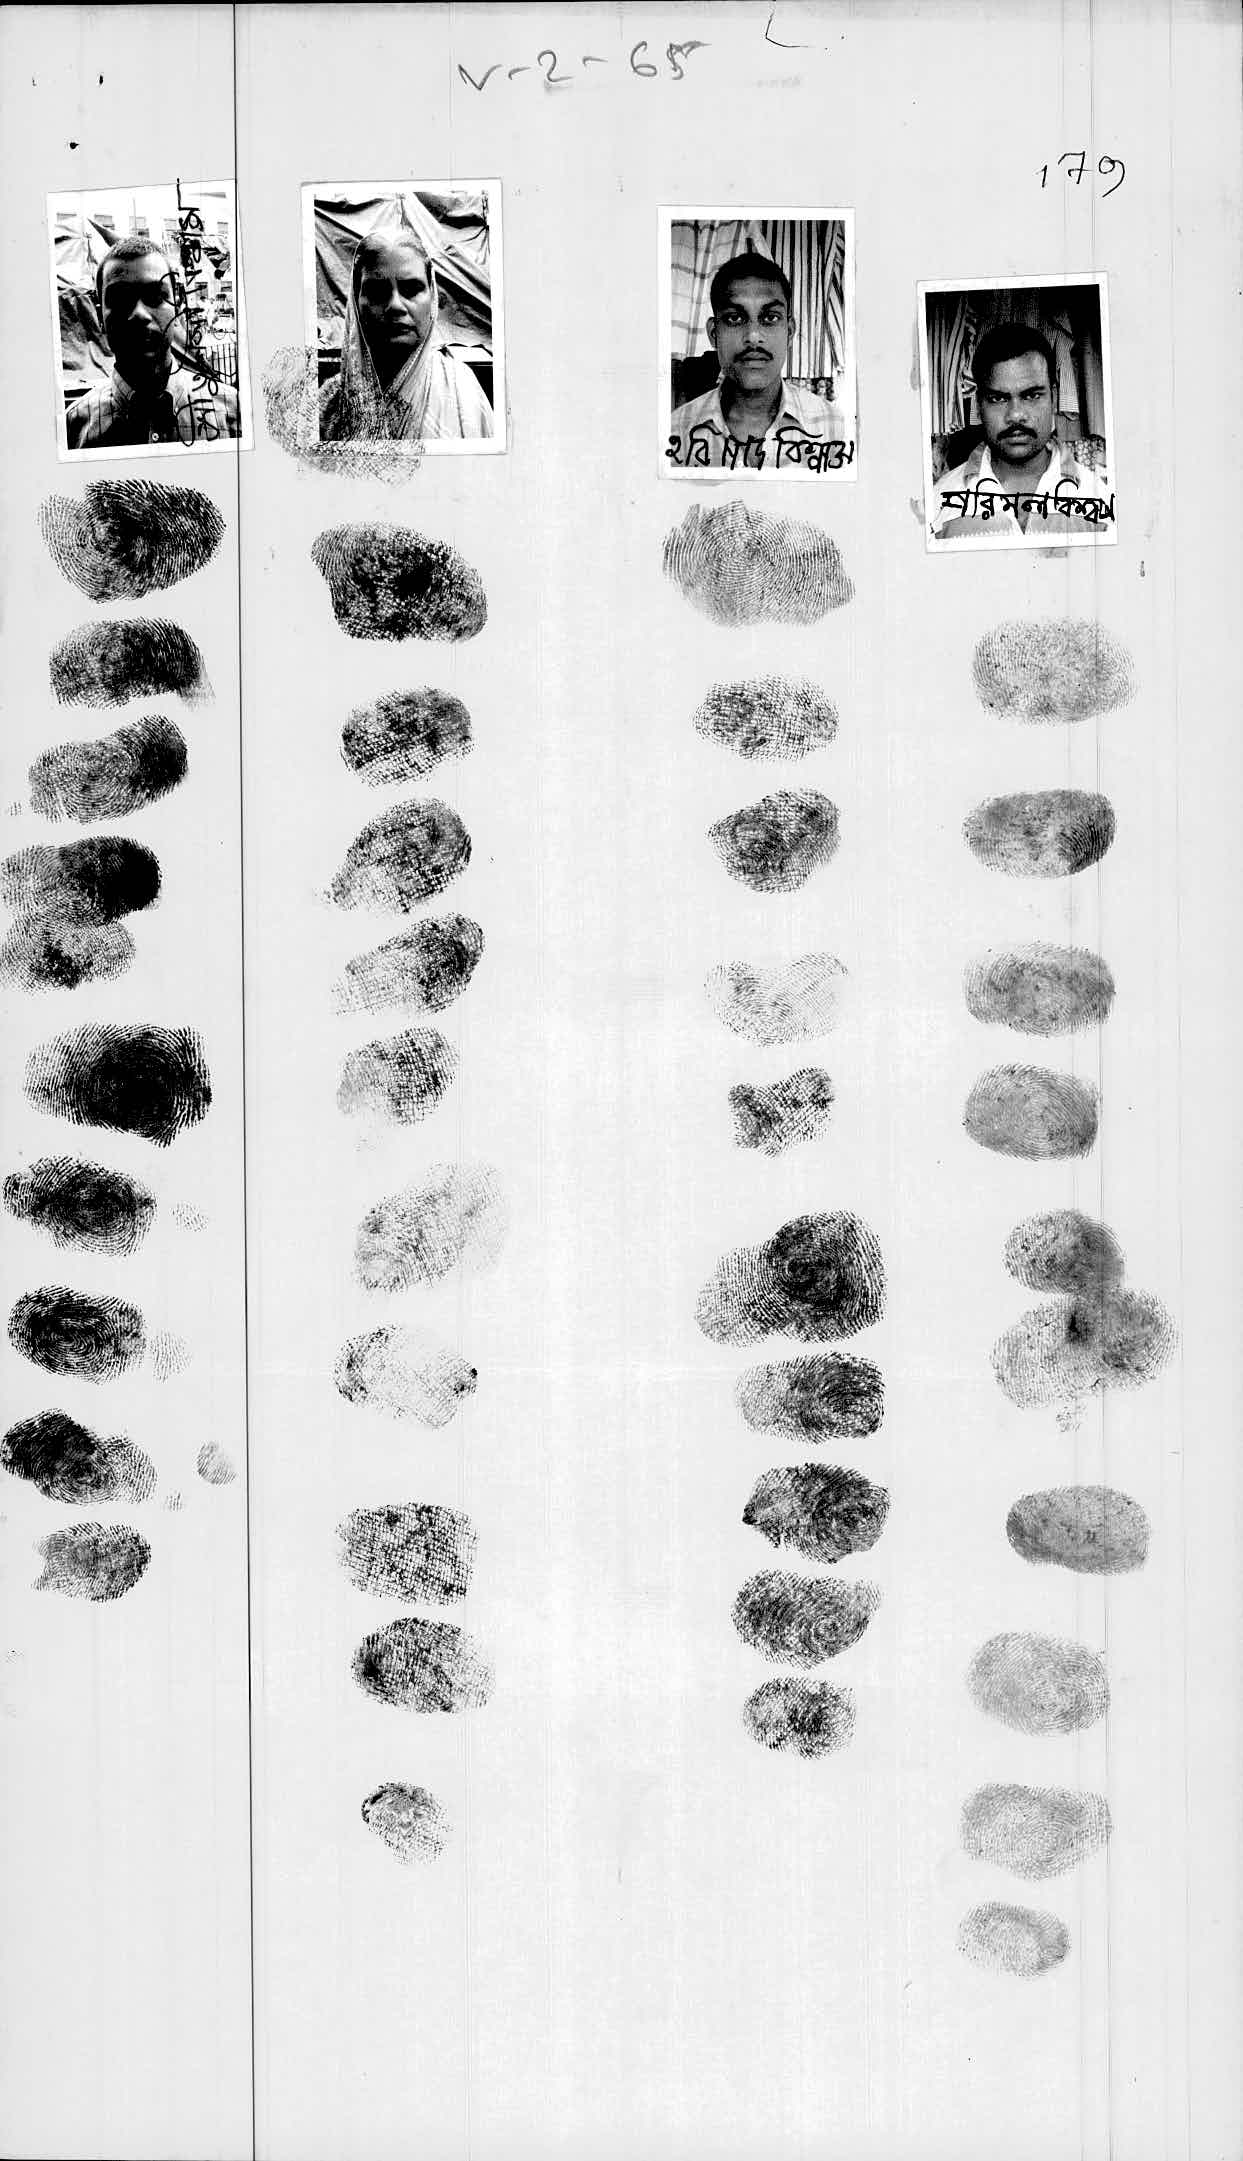 V-2-65
179
হরি পাদ বিশ্বাস
পরিমল বিশ্বাস